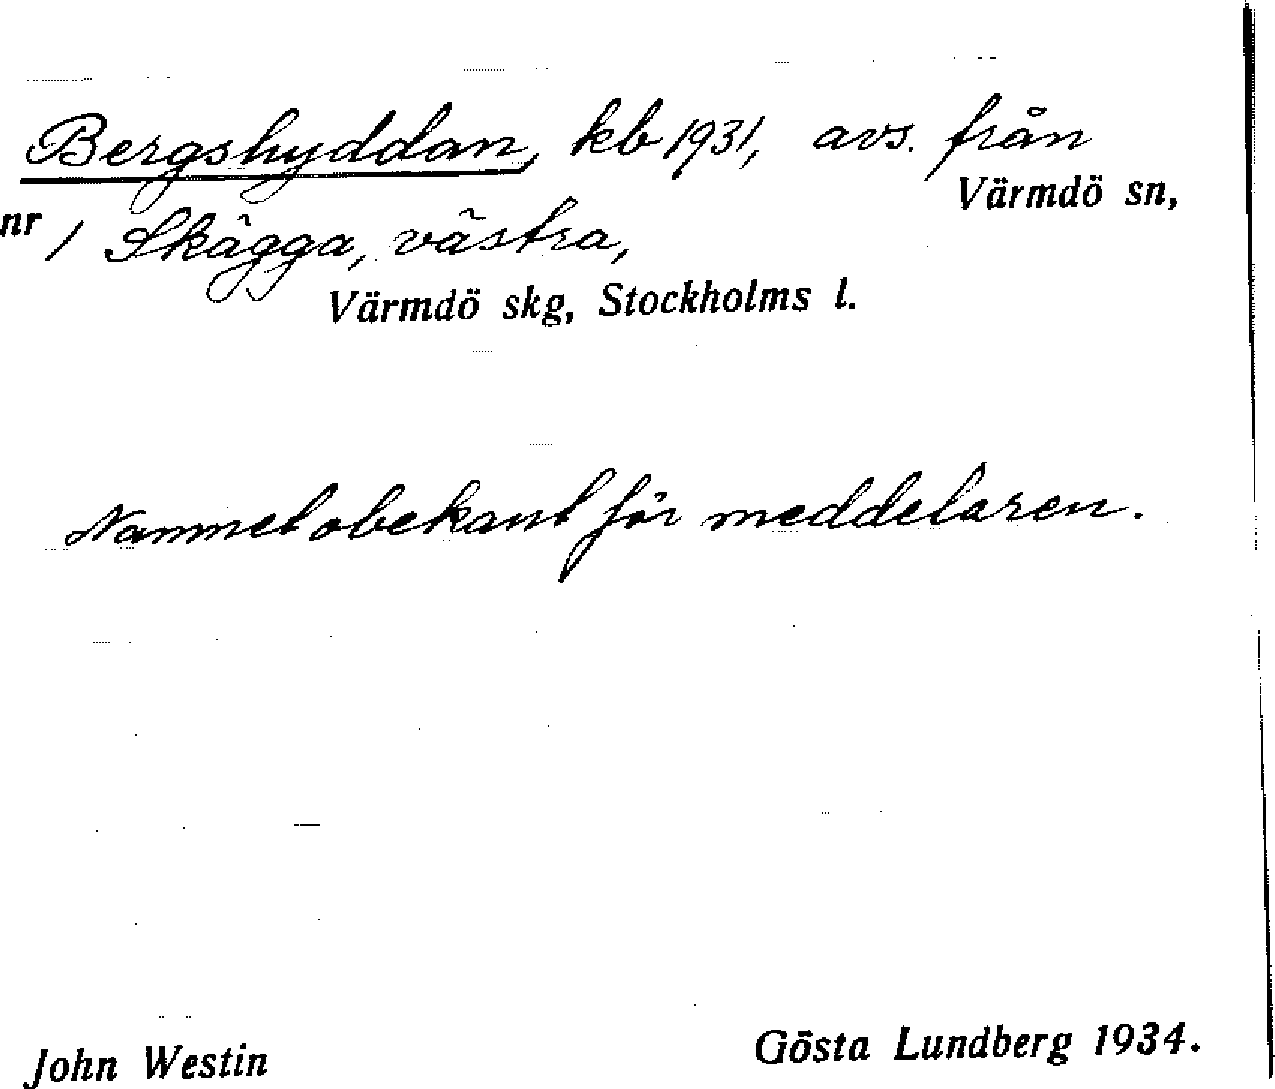 Bergshyddan, kb 1931, avs. från
Värmdö sn,
nr 1 Skägga, västra,
Värmdö skg, Stockholms l.
Namnet obekant för meddelaren.
John Westin
Gösta Lundberg 1934.